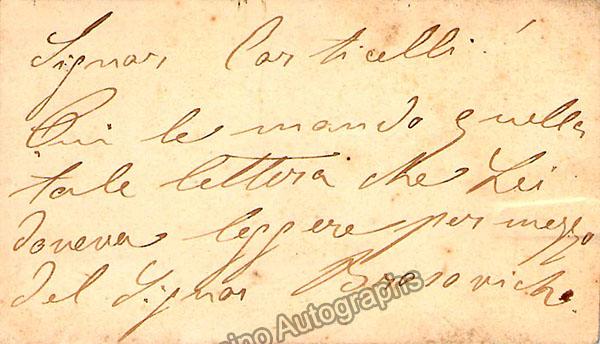 Signor Corticelli!
Qui le mando quella
tale lettera che Lei
doveva leggere per mezzo
del Signor
ino Autographs